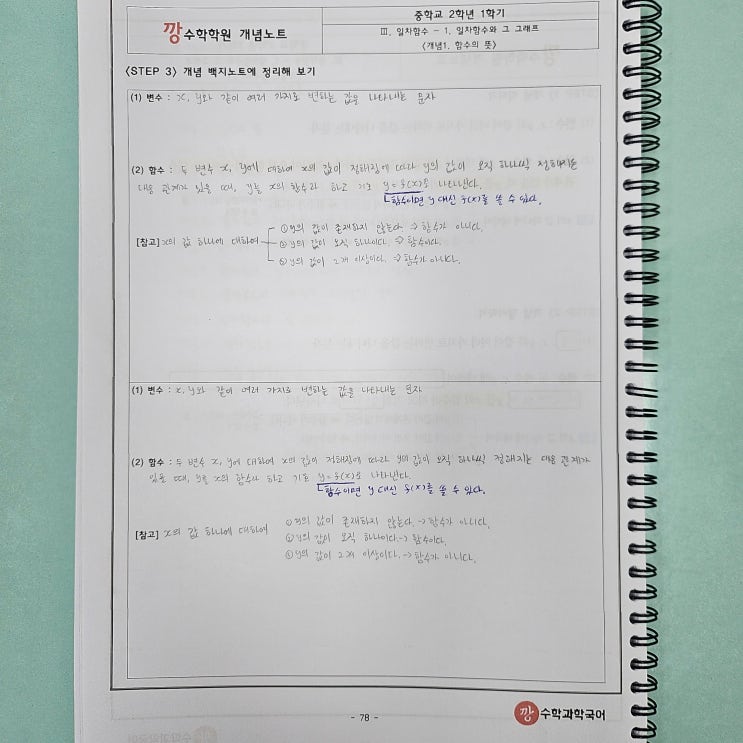 깡수학학원 개념노트
중학교 2학년 1학기
Ⅲ. 일차함수 - 1. 일차함수와 그 그래프
<개념1. 함수의 뜻>
<STEP 3> 개념 백지노트에 정리해 보기
(1) 변수 : x, y와 같이 여러 가지로 변하는 값을 나타내는 문자
(2) 함수 : 두 변수 x, y에 대하여 x의 값이 정해짐에 따라 y의 값이 오직 하나씩 정해지는
대응 관계가 있을 때, y는 x의 함수라 하고 기호 y=f(x)로 나타낸다.
함수이면 y 대신 f(x)를 쓸 수 있다.
[참고] x의 값 하나에 대하여
① y의 값이 존재하지 않는다. → 함수가 아니다.
② y의 값이 오직 하나이다. → 함수이다.
③ y의 값이 2개 이상이다. → 함수가 아니다.
(1) 변수 : x, y와 같이 여러 가지로 변하는 값을 나타내는 문자
(2) 함수 : 두 변수 x, y에 대하여 x의 값이 정해짐에 따라 y의 값이 오직 하나씩 정해지는 대응 관계가
있을 때, y를 x의 함수라 하고 기호 y=f(x)로 나타낸다.
함수이면 y 대신 f(x)를 쓸 수 있다.
[참고] x의 값 하나에 대하여
① y의 값이 존재하지 않는다. → 함수가 아니다.
② y의 값이 오직 하나이다. → 함수이다.
③ y의 값이 2개 이상이다. → 함수가 아니다.
- 78 -
깡 수학과학국어